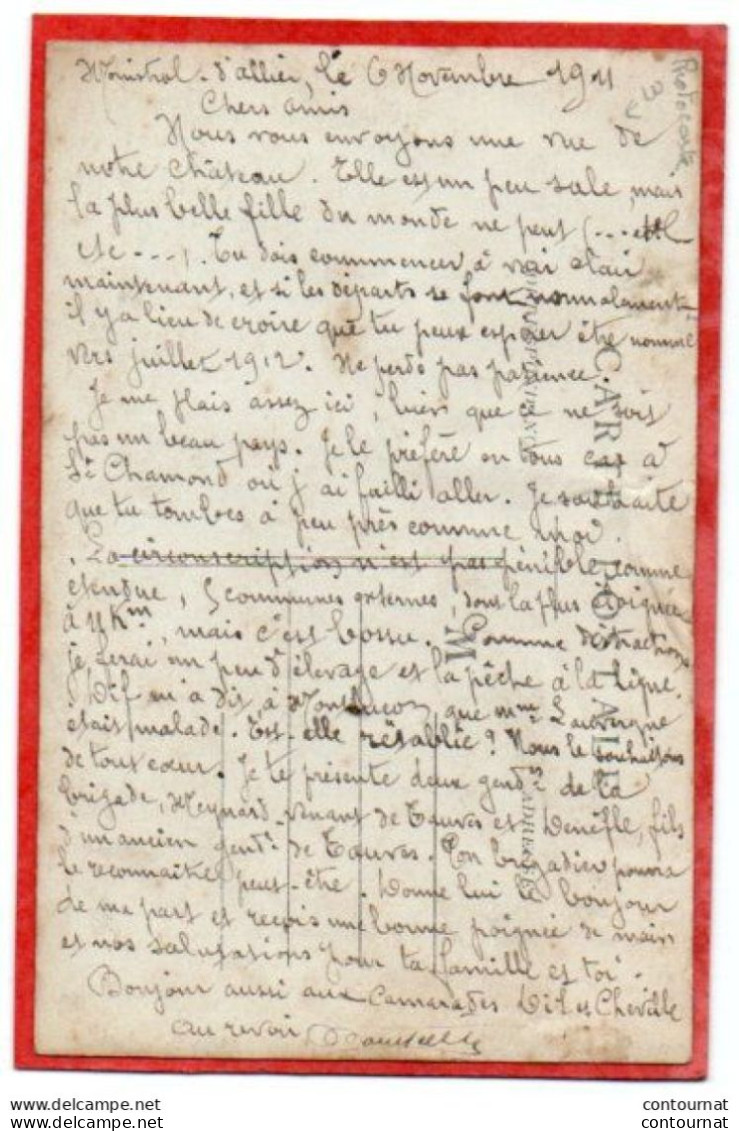 Monistrol-d'allier, le 6 Novembre 1911
Chers amis
Nous vous envoyons une vue de
notre château. Elle est un peu sale, mais
la plus belle fille du monde ne peut (... etc
etc ---). Tu dois commencer à voir clair
maintenant, et si les départs se font normalement
il y a lieu de croire que tu peux espérer être nommé
vers juillet 1912. Ne perds pas patience.
Je me plais assez ici, bien que ce ne soit
pas un beau pays. Je le préfère en tous cas à
St Chamond où j'ai failli aller. Je souhaite
que tu tombes à peu près comme moi.
La circonscription n'est pas pénible comme
étendue, 5 communes externes, dont la plus éloignée
à 11 Km, mais c'est bossu. Comme distractions
je ferai un peu d'élevage et la pêche à la ligne.
Dif m'a dit, à Montluçon, que mme Lauvergne
était malade. Est-elle rétablie? Nous le souhaitons
de tout cœur. Je te présente deux gend.es de la
brigade, Meynard venant de Tauves et Denèfle, fils
d'un ancien gend. de Tauves. Ton brigadier pourra
le reconnaître peut-être. Donne lui le bonjour
de ma part et reçois une bonne poignée de main
et nos salutations pour ta famille et toi.
Bonjour aussi aux Camarades Vil et Cheville
au revoir
Photocarte
CARTE POSTALE
CORRESPONDANCE
ADRESSE
M
https://www.delcampe.net
contournat
https://www.delcampe.net
contournat